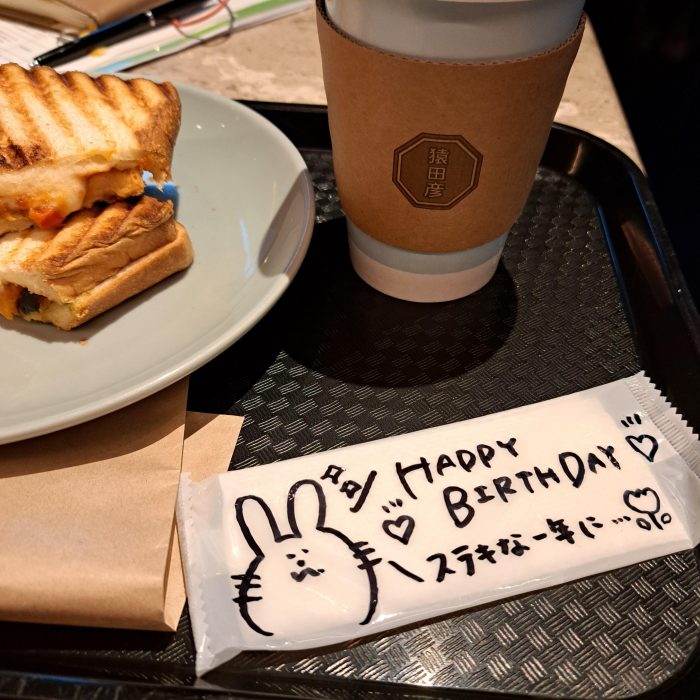 猿田彦
HAPPY
BIRTHDAY
ステキな一年に…